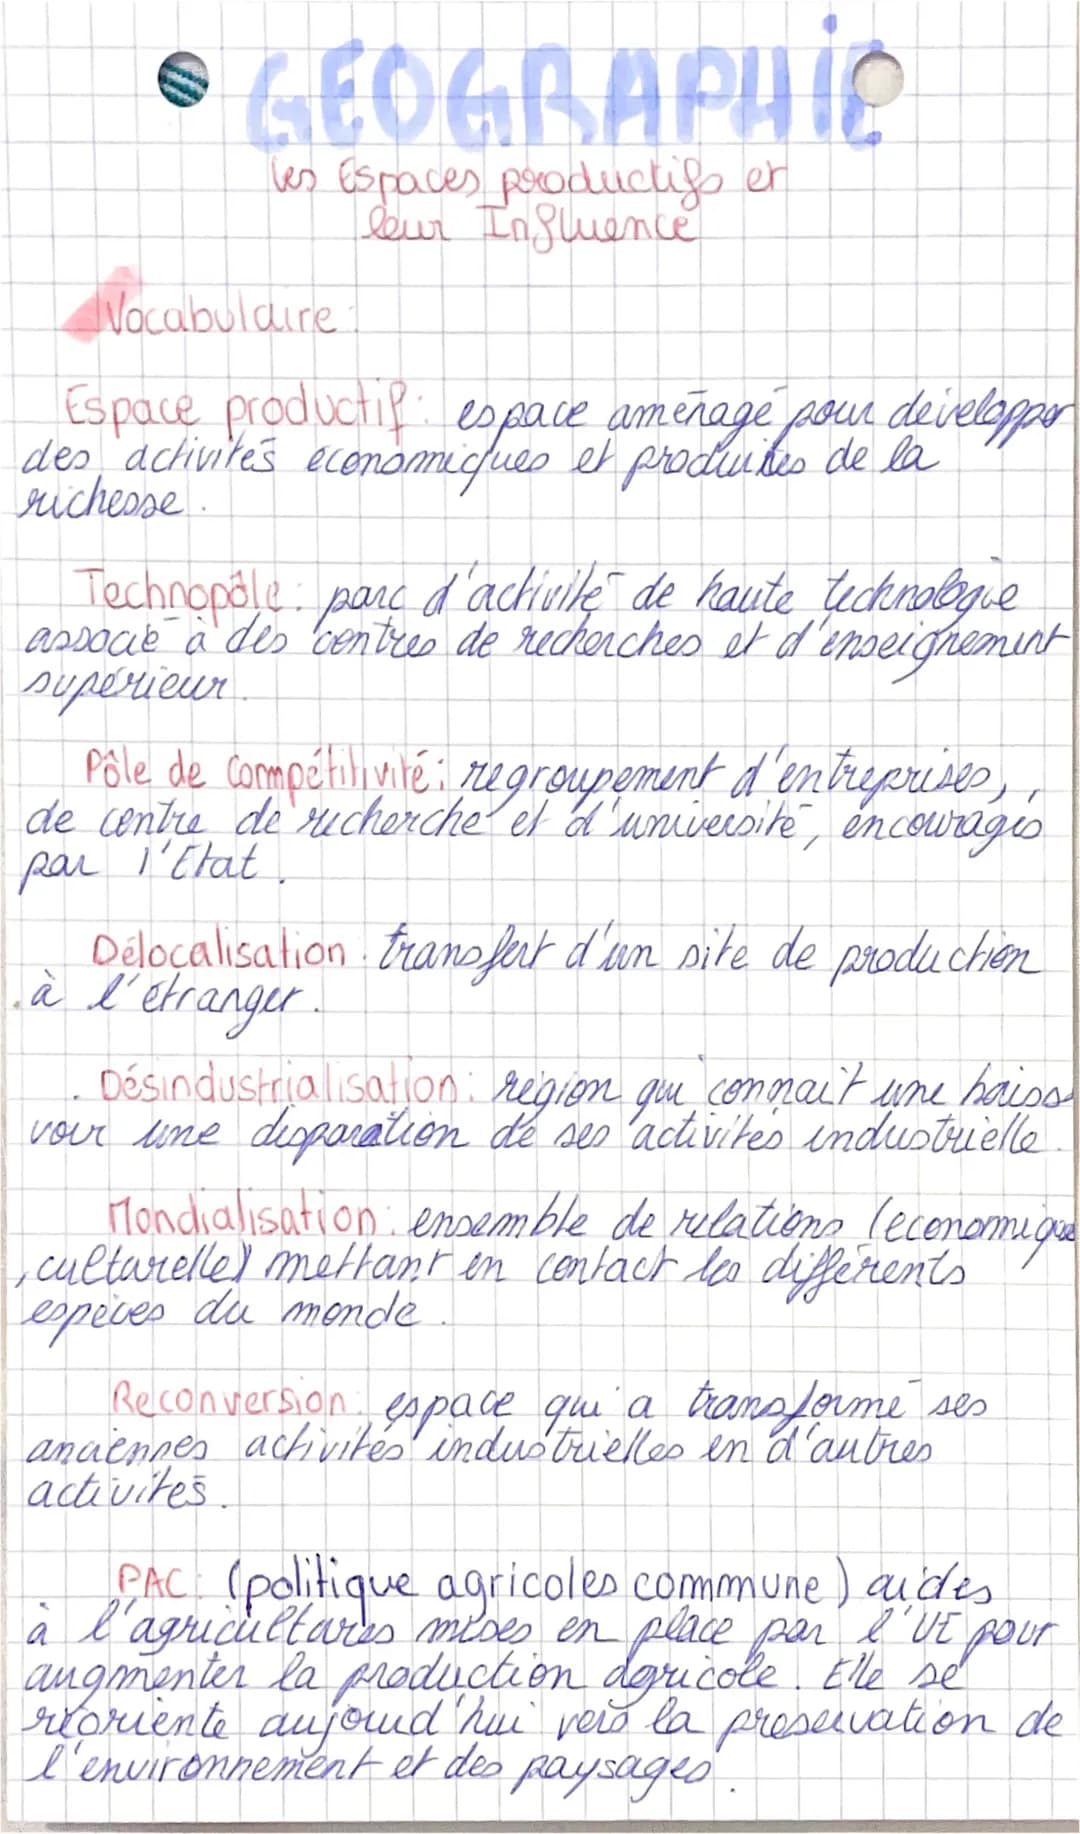 GEOGRAPHIE
les Espaces productifs et
leur Influence
Vocabulaire :
Espace productif : espace aménagé pour développer
des activités économiques et produites de la
richesse.
Technopôle : parc d'activité de haute technologie
associé à des centres de recherches et d'enseignement
supérieur.
Pôle de Compétitivité : regroupement d'entreprises,
de centre de recherche et d'université, encouragés
par l'Etat.
Délocalisation : transfert d'un site de production
à l'étranger.
Désindustrialisation : région qui connait une baisse
voir une disparation de ses activités industrielle.
Mondialisation : ensemble de relations (economique
, culturelle) mettant en contact les différents
espèces du monde.
Reconversion : espace qui a transformé ses
anciennes activités industrielles en d'autres
activités.
PAC : (politique agricoles commmune) aides
à l'agricultures mises en place par l'UE pour
augmenter la production agricole. Elle se
réoriente aujourd'hui vers la preservation de
l'environnement et des paysages.